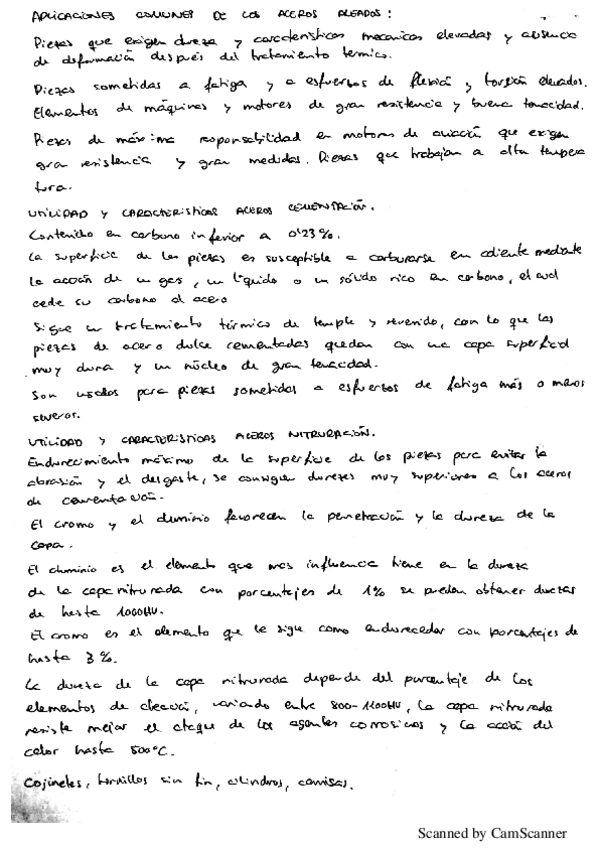 APLICACIONES COMUNES DE LOS ACEROS ALEADOS:
Piezas que exigen dureza y características mecanicas elevadas y ausencia
de deformación después del tratamiento termico.
Piezas sometidas a fatiga y a esfuerzos de flexión y torsión elevados.
Elementos de máquinas y motores de gran resistencia y buena tenacidad.
Piezas de máxima responsabilidad en motores de aviación que exigen
gran resistencia y gran medidas. Piezas que trabajan a alta tempera
tura.
UTILIDAD Y CARACTERISTICAS ACEROS CEMENTACIÓN.
Contenido en carbono inferior a 0'23%.
La superficie de las piezas es susceptible a carburarse en caliente mediante
la acción de un gas, un líquido o un sólido rico en carbono, el cual
cede su carbono al acero
Sigue un tratamiento térmico de temple y revenido, con lo que las
piezas de acero dulce cementadas quedan con una capa superficial
muy dura y un núcleo de gran tenacidad.
Son usados para piezas sometidas a esfuerzos de fatiga más o menos
severos.
UTILIDAD Y CARACTERISTICAS ACEROS NITRURACIÓN.
Endurecimiento máximo de la superficie de las piezas para evitar la
abrasión y el desgaste, se consiguen durezas muy superiores a los aceros
de cementación.
El cromo y el aluminio favorecen la penetración y la dureza de la
capa.
El aluminio es el elemento que mas influencia tiene en la dureza
de la capa nitrurada con porcentajes de 1% se pueden obtener durezas
de hasta 1000HV.
El cromo es el elemento que le sigue como endurecedor con porcentajes de
hasta 3%.
La dureza de la capa nitrurada depende del porcentaje de los
elementos de aleación, variando entre 800-1100HV, la capa nitrurada
resiste mejor el ataque de los agentes corrosivos y la acción del
calor hasta 500°C.
Cojinetes, tornillos sin fin, cilindros, camisas.
Scanned by CamScanner